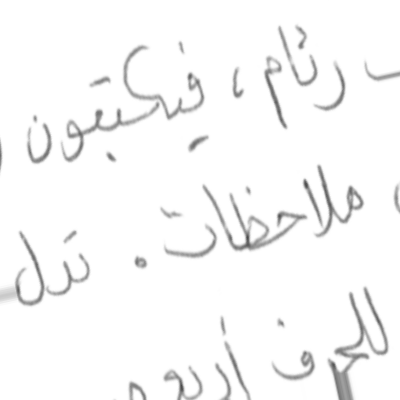 رئام ، فيكتبون
ملاحظات . تدل
للحرف أربعة